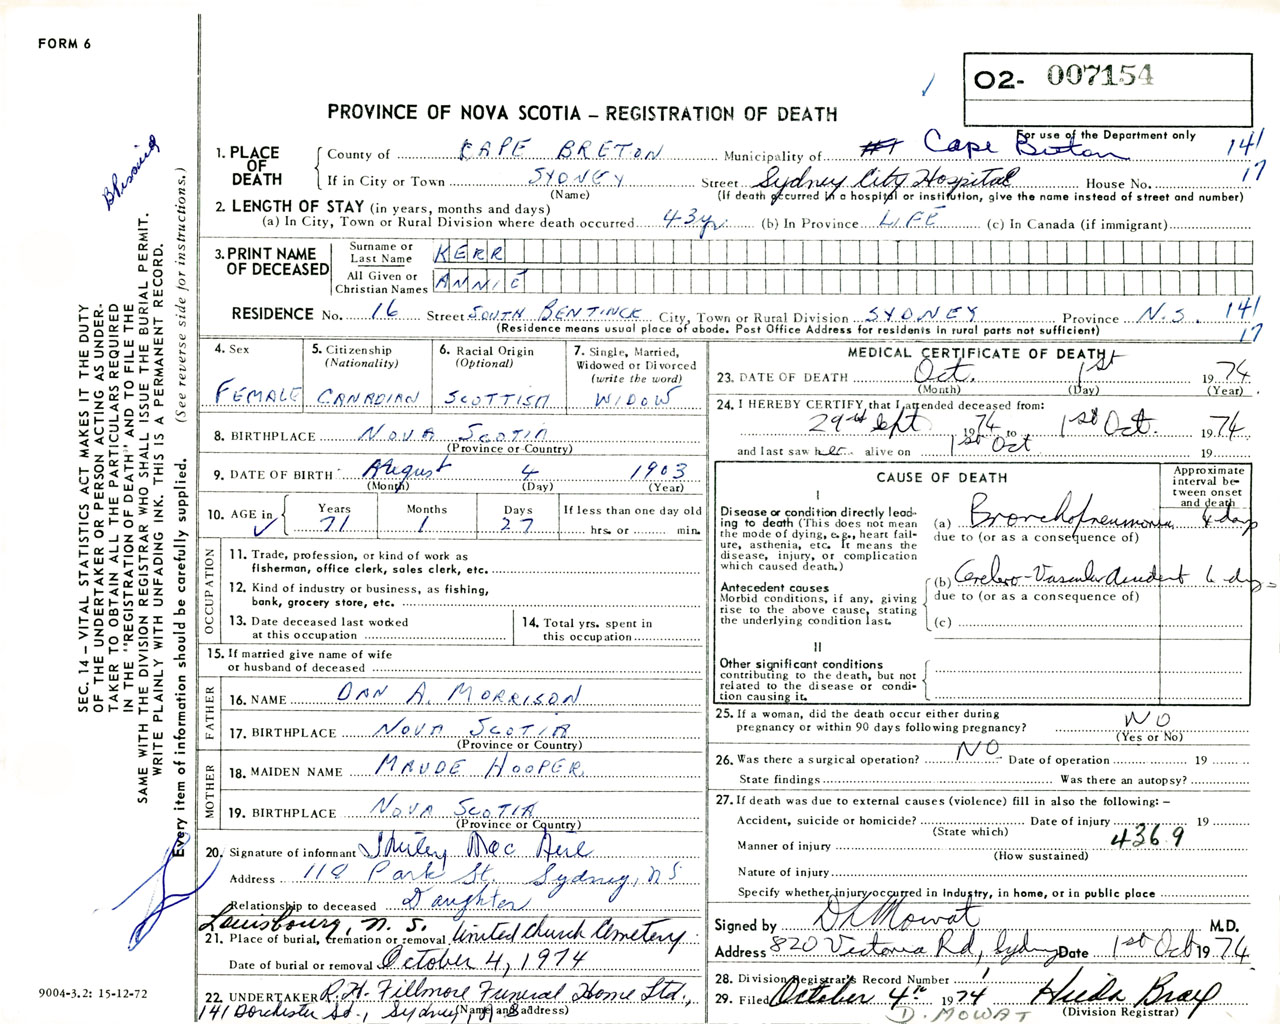 FORM 6
O2- 007154
PROVINCE OF NOVA SCOTIA – REGISTRATION OF DEATH
For use of the Department only
1. PLACE OF DEATH
County of CAPE BRETON Municipality of Cape Breton 141
If in City or Town SYDNEY Street Sydney City Hospital House No. 17
(Name) (If death occurred in a hospital or institution, give the name instead of street and number)
2. LENGTH OF STAY (in years, months and days)
(a) In City, Town or Rural Division where death occurred 43 yr. (b) In Province LIFE (c) In Canada (if immigrant)
3. PRINT NAME OF DECEASED
Surname or Last Name KERR
All Given or Christian Names ANNIE
RESIDENCE No. 16 Street SOUTH BENTINCK City, Town or Rural Division SYDNEY Province N.S. 141
(Residence means usual place of abode. Post Office Address for residents in rural parts not sufficient) 17
4. Sex FEMALE
5. Citizenship (Nationality) CANADIAN
6. Racial Origin (Optional) SCOTTISH
7. Single, Married, Widowed or Divorced (write the word) WIDOW
8. BIRTHPLACE NOVA SCOTIA
(Province or Country)
9. DATE OF BIRTH August 4 1903
(Month) (Day) (Year)
10. AGE in Years 71 Months 1 Days 27 If less than one day old hrs. or min.
OCCUPATION
11. Trade, profession, or kind of work as fisherman, office clerk, sales clerk, etc.
12. Kind of industry or business, as fishing, bank, grocery store, etc.
13. Date deceased last worked at this occupation
14. Total yrs. spent in this occupation
15. If married give name of wife or husband of deceased
FATHER
16. NAME DAN A. MORRISON
17. BIRTHPLACE NOVA SCOTIA
(Province or Country)
MOTHER
18. MAIDEN NAME MAUDE HOOPER
19. BIRTHPLACE NOVA SCOTIA
(Province or Country)
20. Signature of informant Shirley Mac
Address 118 Park St. Sydney, NS
Relationship to deceased Daughter
Louisbourg, N.S.
21. Place of burial, cremation or removal United Church Cemetery
Date of burial or removal October 4, 1974
22. UNDERTAKER R.H. Fillmore Funeral Home Ltd.,
141 Dorchester St., Sydney, N.S.
(Name and address)
MEDICAL CERTIFICATE OF DEATH
23. DATE OF DEATH Oct. 1st 1974
(Month) (Day) (Year)
24. I HEREBY CERTIFY that I attended deceased from:
29th Sept 1974 to 1st Oct. 1974
and last saw her alive on 1st Oct 19
CAUSE OF DEATH
Approximate interval between onset and death
I
Disease or condition directly leading to death (This does not mean the mode of dying, e.g., heart failure, asthenia, etc. It means the disease, injury, or complication which caused death.)
(a) Bronchopneumonia days
due to (or as a consequence of)
Antecedent causes
Morbid conditions, if any, giving rise to the above cause, stating the underlying condition last.
(b) Cerebro-Vascular Accident 6 days
due to (or as a consequence of)
(c)
II
Other significant conditions contributing to the death, but not related to the disease or condition causing it.
25. If a woman, did the death occur either during pregnancy or within 90 days following pregnancy? NO
(Yes or No)
26. Was there a surgical operation? NO Date of operation 19
State findings Was there an autopsy?
27. If death was due to external causes (violence) fill in also the following: –
Accident, suicide or homicide? Date of injury 19
(State which) 4369
Manner of injury
(How sustained)
Nature of injury
Specify whether injury occurred in Industry, in home, or in public place
Signed by Mowat M.D.
Address 820 Victoria Rd, Sydney Date 1st Oct 1974
28. Division Registrar's Record Number
29. Filed October 4th 1974 Hilda Bray
(Division Registrar)
D. MOWAT
SEC. 14 – VITAL STATISTICS ACT MAKES IT THE DUTY
OF THE UNDERTAKER OR PERSON ACTING AS UNDER-
TAKER TO OBTAIN ALL THE PARTICULARS REQUIRED
IN THE "REGISTRATION OF DEATH" AND TO FILE THE
SAME WITH THE DIVISION REGISTRAR WHO SHALL ISSUE THE BURIAL PERMIT.
WRITE PLAINLY WITH UNFADING INK. THIS IS A PERMANENT RECORD.
Every item of information should be carefully supplied. (See reverse side for instructions.)
9004-3.2: 15-12-72